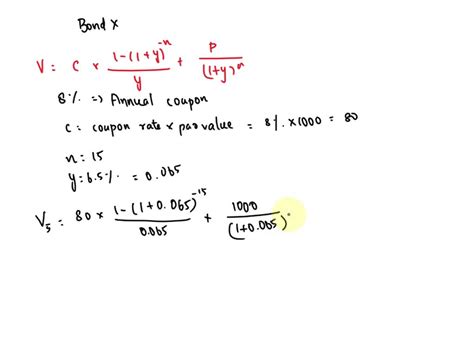 Bond X
V = C × 1-(1+y)^-n / y + P / (1+y)^n
8% => Annual coupon
C = coupon rate × par value = 8% × 1000 = 80
n = 15
y = 6.5% = 0.065
V5 = 80 × 1-(1+0.065)^-15 / 0.065 + 1000 / (1+0.065)